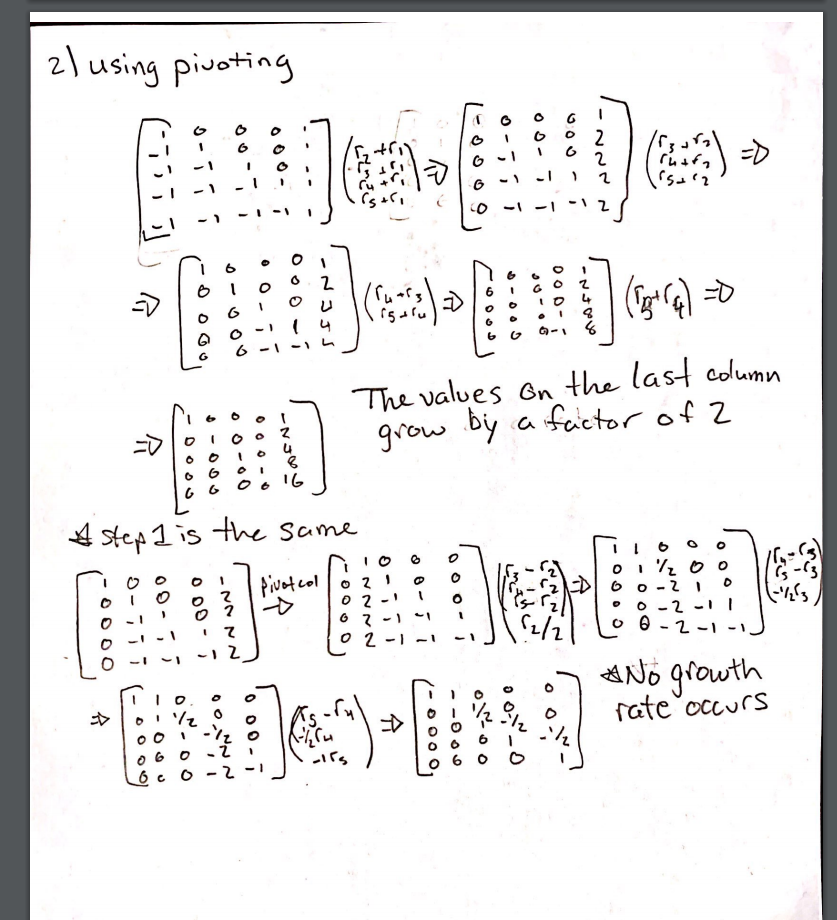 2) using pivoting
1 0 0 0 1
-1 1 0 0 1
-1 -1 1 0 1
-1 -1 -1 1 1
-1 -1 -1 -1 1
r2+r1
r3+r1
r4+r1
r5+r1
⇒
1 0 0 0 1
0 1 0 0 2
0 -1 1 0 2
0 -1 -1 1 2
0 -1 -1 -1 2
r3+r2
r4+r2
r5+r2
⇒
⇒
1 0 0 0 1
0 1 0 0 2
0 0 1 0 4
0 0 -1 1 4
0 0 -1 -1 4
r4+r3
r5+r4
⇒
1 0 0 0 1
0 1 0 0 2
0 0 1 0 4
0 0 0 1 8
0 0 0 -1 8
(r5+r4) ⇒
⇒
1 0 0 0 1
0 1 0 0 2
0 0 1 0 4
0 0 0 1 8
0 0 0 0 16
The values on the last column
grow by a factor of 2
* step 1 is the same
1 0 0 0 1
0 1 0 0 2
0 -1 1 0 2
0 -1 -1 1 2
0 -1 -1 -1 2
Pivot col
→
1 1 0 0 0
0 2 1 0 0
0 2 -1 1 0
0 2 -1 -1 1
0 2 -1 -1 -1
r3-r2
r4-r2
r5-r2
r2/2
⇒
1 1 0 0 0
0 1 1/2 0 0
0 0 -2 1 0
0 0 -2 -1 1
0 0 -2 -1 -1
r4-r3
r5-r3
-1/2r3
⇒
1 1 0 0 0
0 1 1/2 0 0
0 0 1 -1/2 0
0 0 0 -2 1
0 0 0 -2 -1
r5-r4
-1/2r4
-1r5
⇒
1 1 0 0 0
0 1 1/2 0 0
0 0 1 -1/2 0
0 0 0 1 -1/2
0 0 0 0 1
* No growth
rate occurs